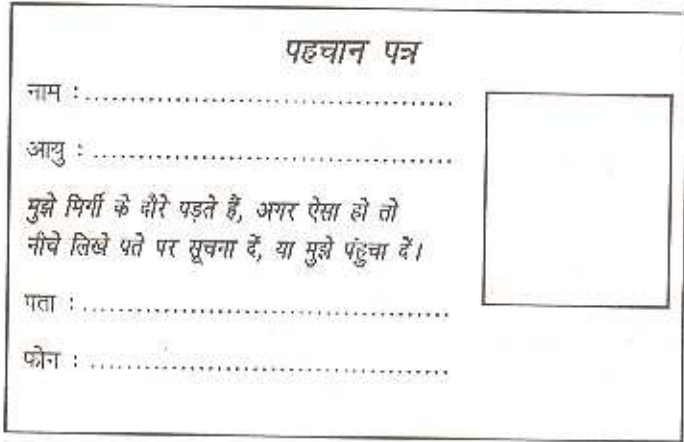 पहचान पत्र
नाम :........................................
आयु :........................................
मुझे मिर्गी के दौरे पड़ते हैं, अगर ऐसा हो तो
नीचे लिखे पते पर सूचना दें, या मुझे पंहुचा दें।
पता :........................................
फोन :........................................